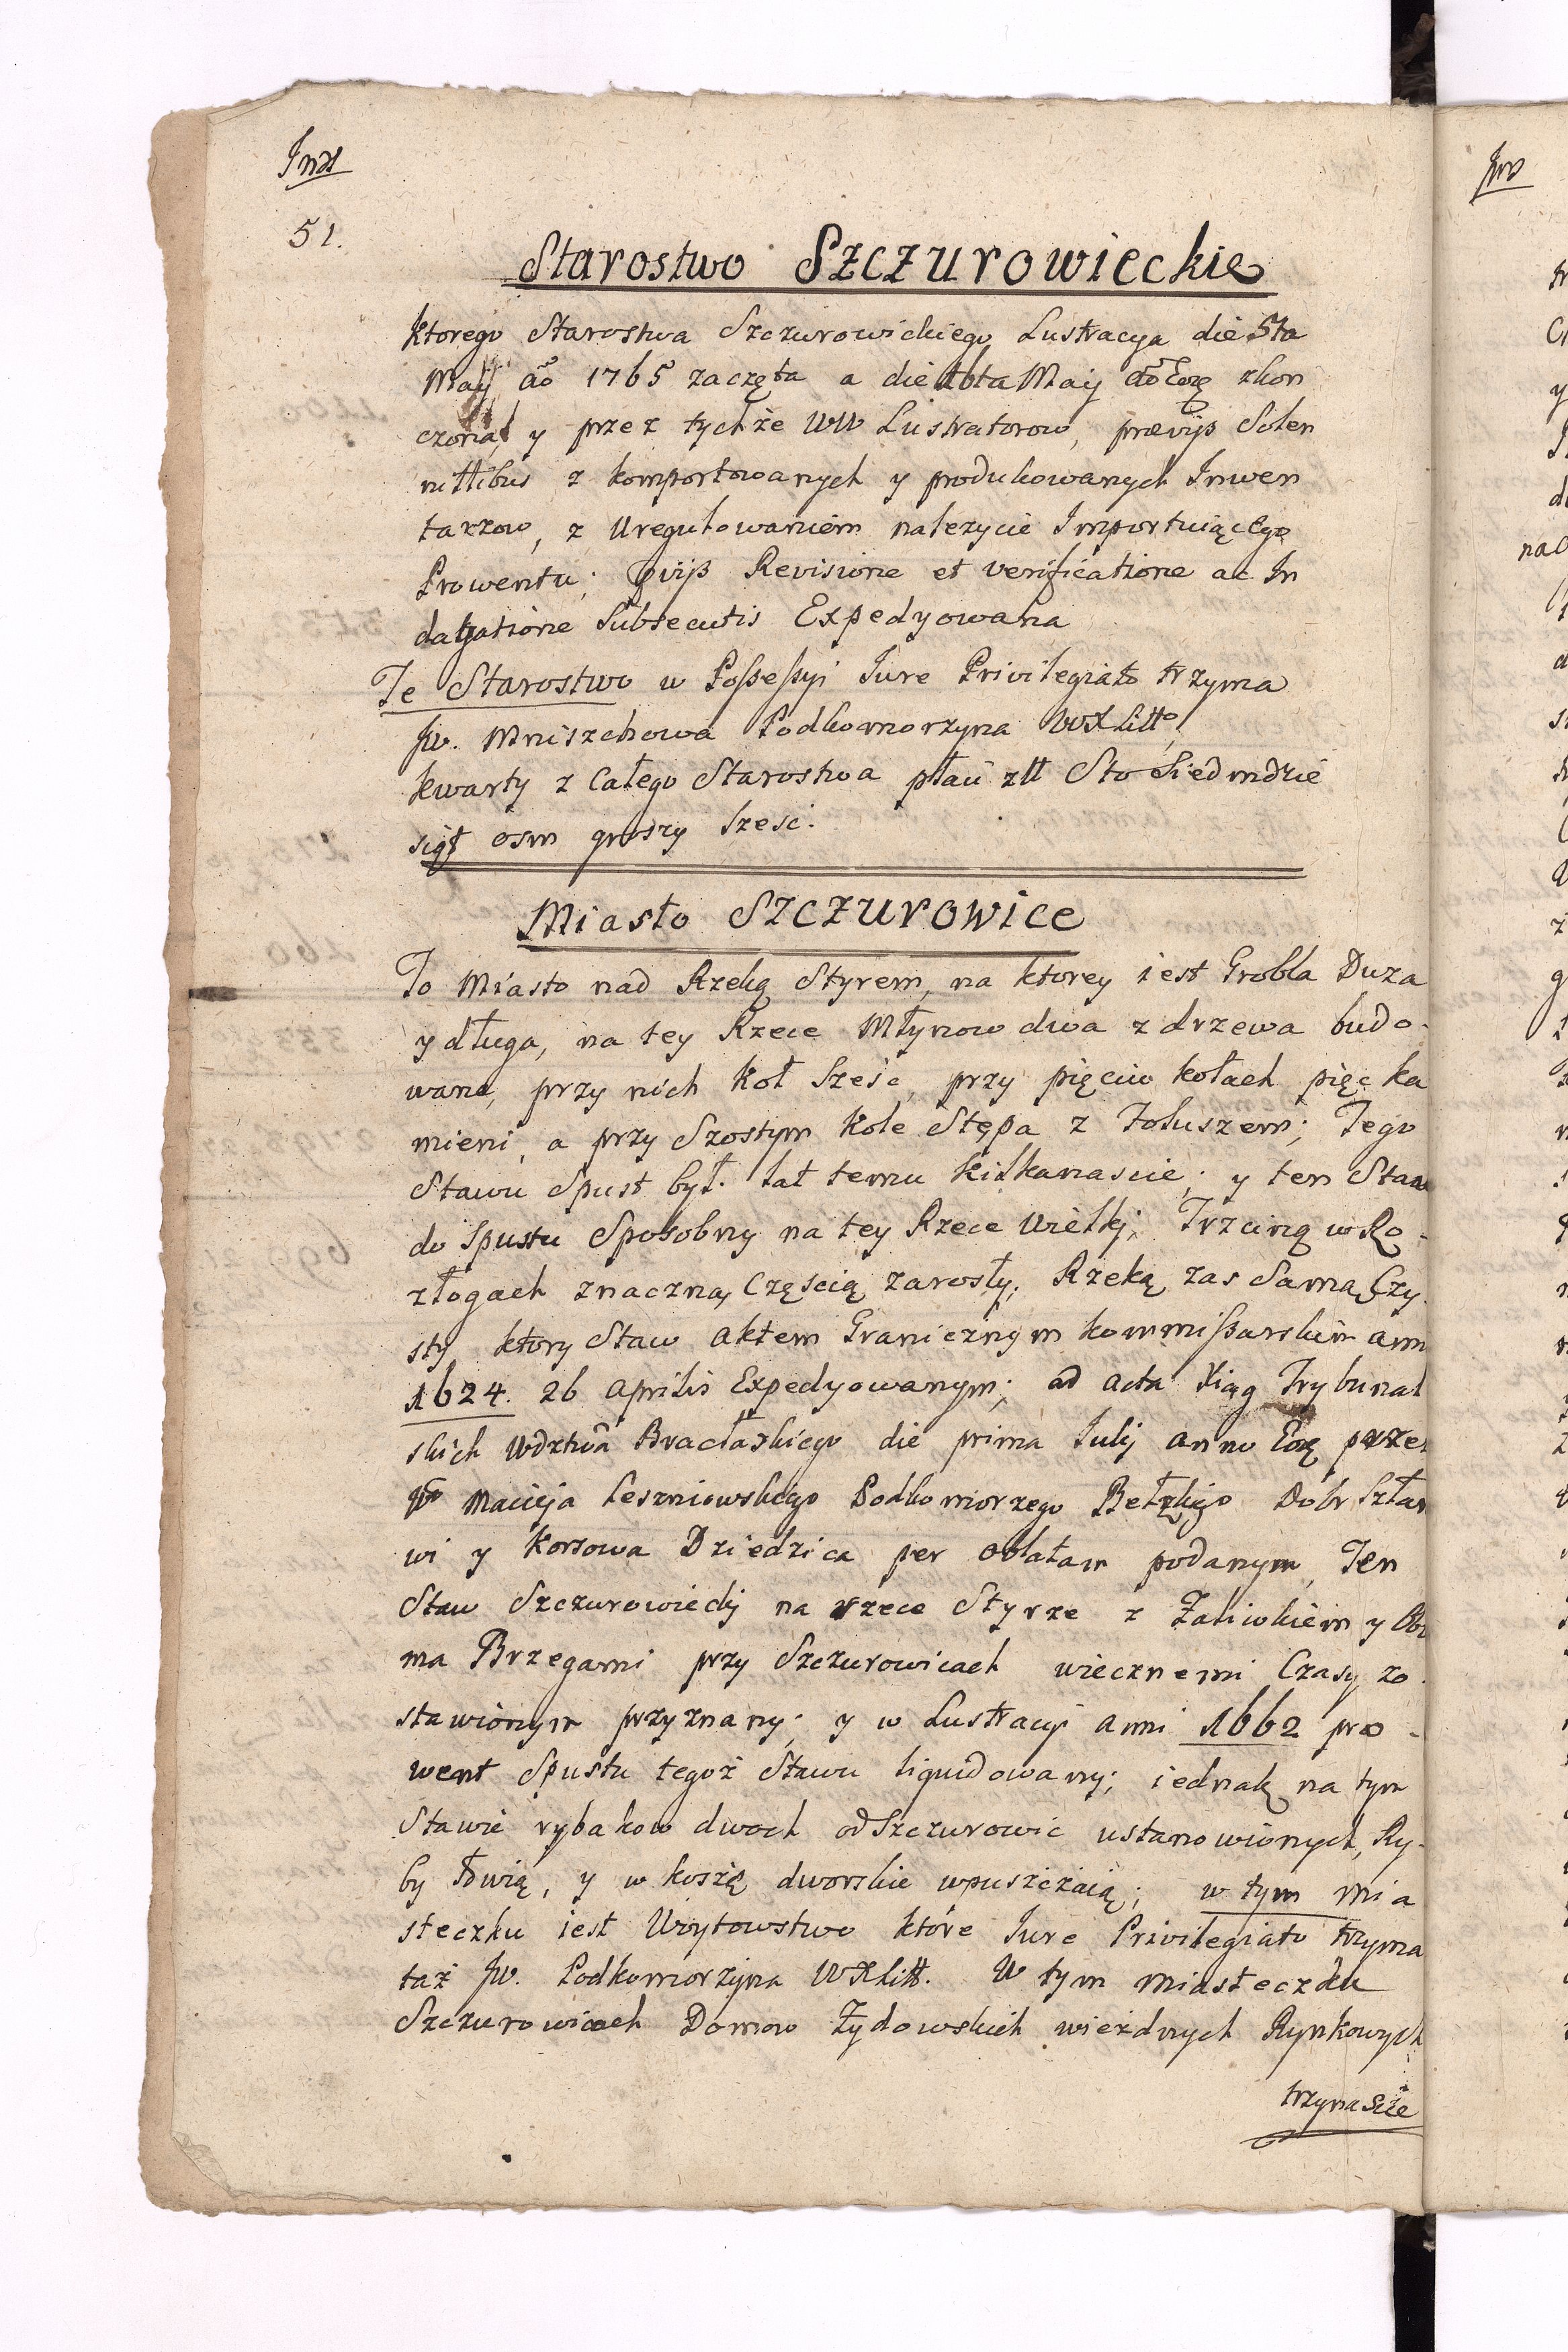 Inst
51.
Starostwo Szczurowieckie
Ktorego Starostwa Szczurowickiego Lustracya die 5ta
Maij aõ 1765 zaczęta a die 16ta Maij aõ Eoꝝ skon
czona, y przez tychże WW Lustratorow, prævijs Solen
nittibus z komportowanych y produkowanych Inwen
tarzow, z Uregulowaniem nalezycie Importuiącego
Prowentu; pvijs Revisione et verificatione ac In
dagatione Subsecutis Expedyowana
Te Starostwo w Poßeßyi Iure Privilegiato trzyma
Jw. Mniszchowa Podkomorzyna WXLitto,
kwarty z Całego Starostwa płaci złł Sto Siedmdzie
siąt osm groszy Sześc.
Miasto Szczurowice
To Miasto nad Rzeką Styrem, na ktorey iest Grobla Duza
y długa, na tey Rzece Młynow dwa z drzewa budo-
wane, przy nich Koł Sześc, przy pięciu kołach pięc ka
mieni, a przy Szostym Kole Stępa z Foluszem; Tego
Stawu Spust był lat temu kilkanascie; y ten Staw
do Spustu Sposobny na tey Rzece Wielkj, Trzciną w Ro-
złogach znaczną Częścią zarosły; Rzeką zas Samą Czy-
sty ktory Staw aktem Granicznym kommißarskim anni
1624. 26 Aprilis Expedyowanym; ad acta Xiąg Trybunal
skich Wdztwa Bracławskiego die prima Iulij anno Eoꝝ przez
Macieja Leszniowskiego Podkomorzego Bełzkigo Dobr
wi y Korsowa Dziedzica per oblatam podanym, Ten
Staw Szczurowiecki na rzece Styrze z Zaliwkiem y Obu
ma Brzegami przy Szczurowicach wiecznemi Czasy zo-
stawionym przyznany; y w Lustracyi Anni 1662 pro-
went Spustu tegoż Stawu liquidowany; iednak na tym
Stawie rybakow dwoch od Szczurowic ustanowionych, Ry-
by łowią, y w koszę dworskie wpuszczaią; w tym mia
steczku iest Woytowstwo które Iure Privilegiato trzyma
taż Jw. Podkomorzyna WXLitt. W tym miasteczku
Szczurowicach Domow Żydowskich wieżdnych Rynkowych
trzynascie